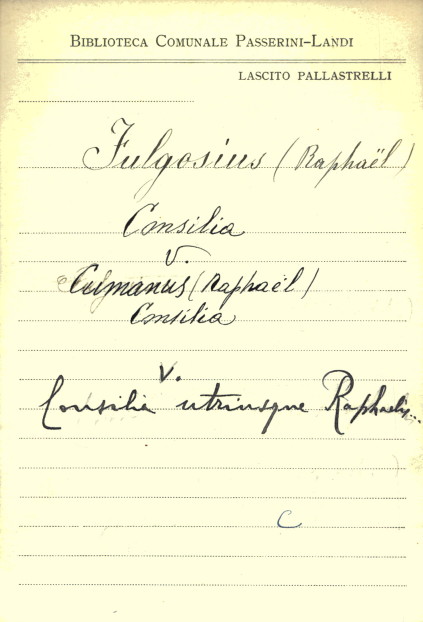 BIBLIOTECA COMUNALE PASSERINI-LANDI
LASCITO PALLASTRELLI
Fulgosius (Raphaël)
Consilia
V.
Cumanus (Raphaël)
Consilia
V.
Consilia utriusque Raphaelis...
C